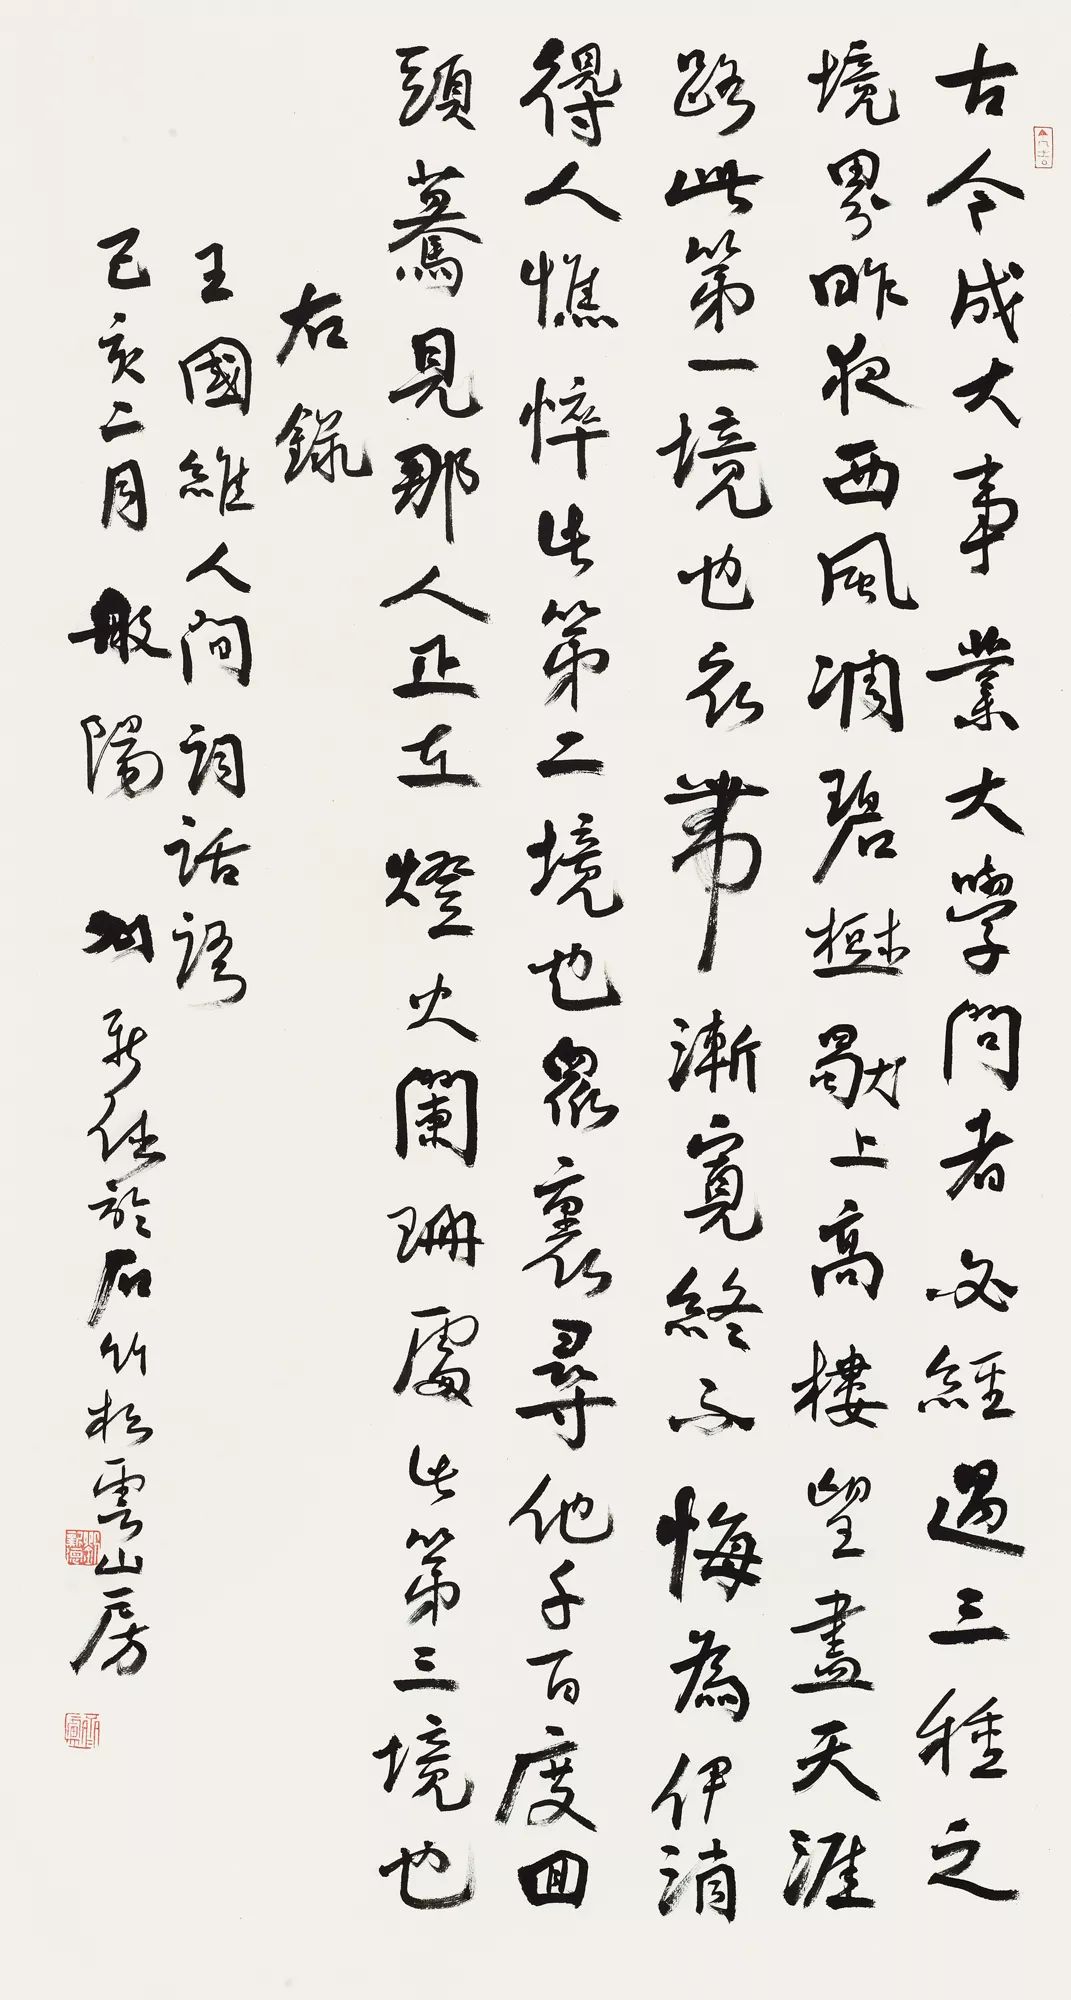 古今成大事業大學問者必經過三種之
境界昨夜西風凋碧樹獨上高樓望盡天涯
路此第一境也衣帶漸寬終不悔為伊消
得人憔悴此第二境也眾裏尋他千百度囬
頭驀見那人正在燈火闌珊處此第三境也
右錄
王國維人間詞話語
己亥二月 般陽 劉新德於石竹松雲山房
劉新德